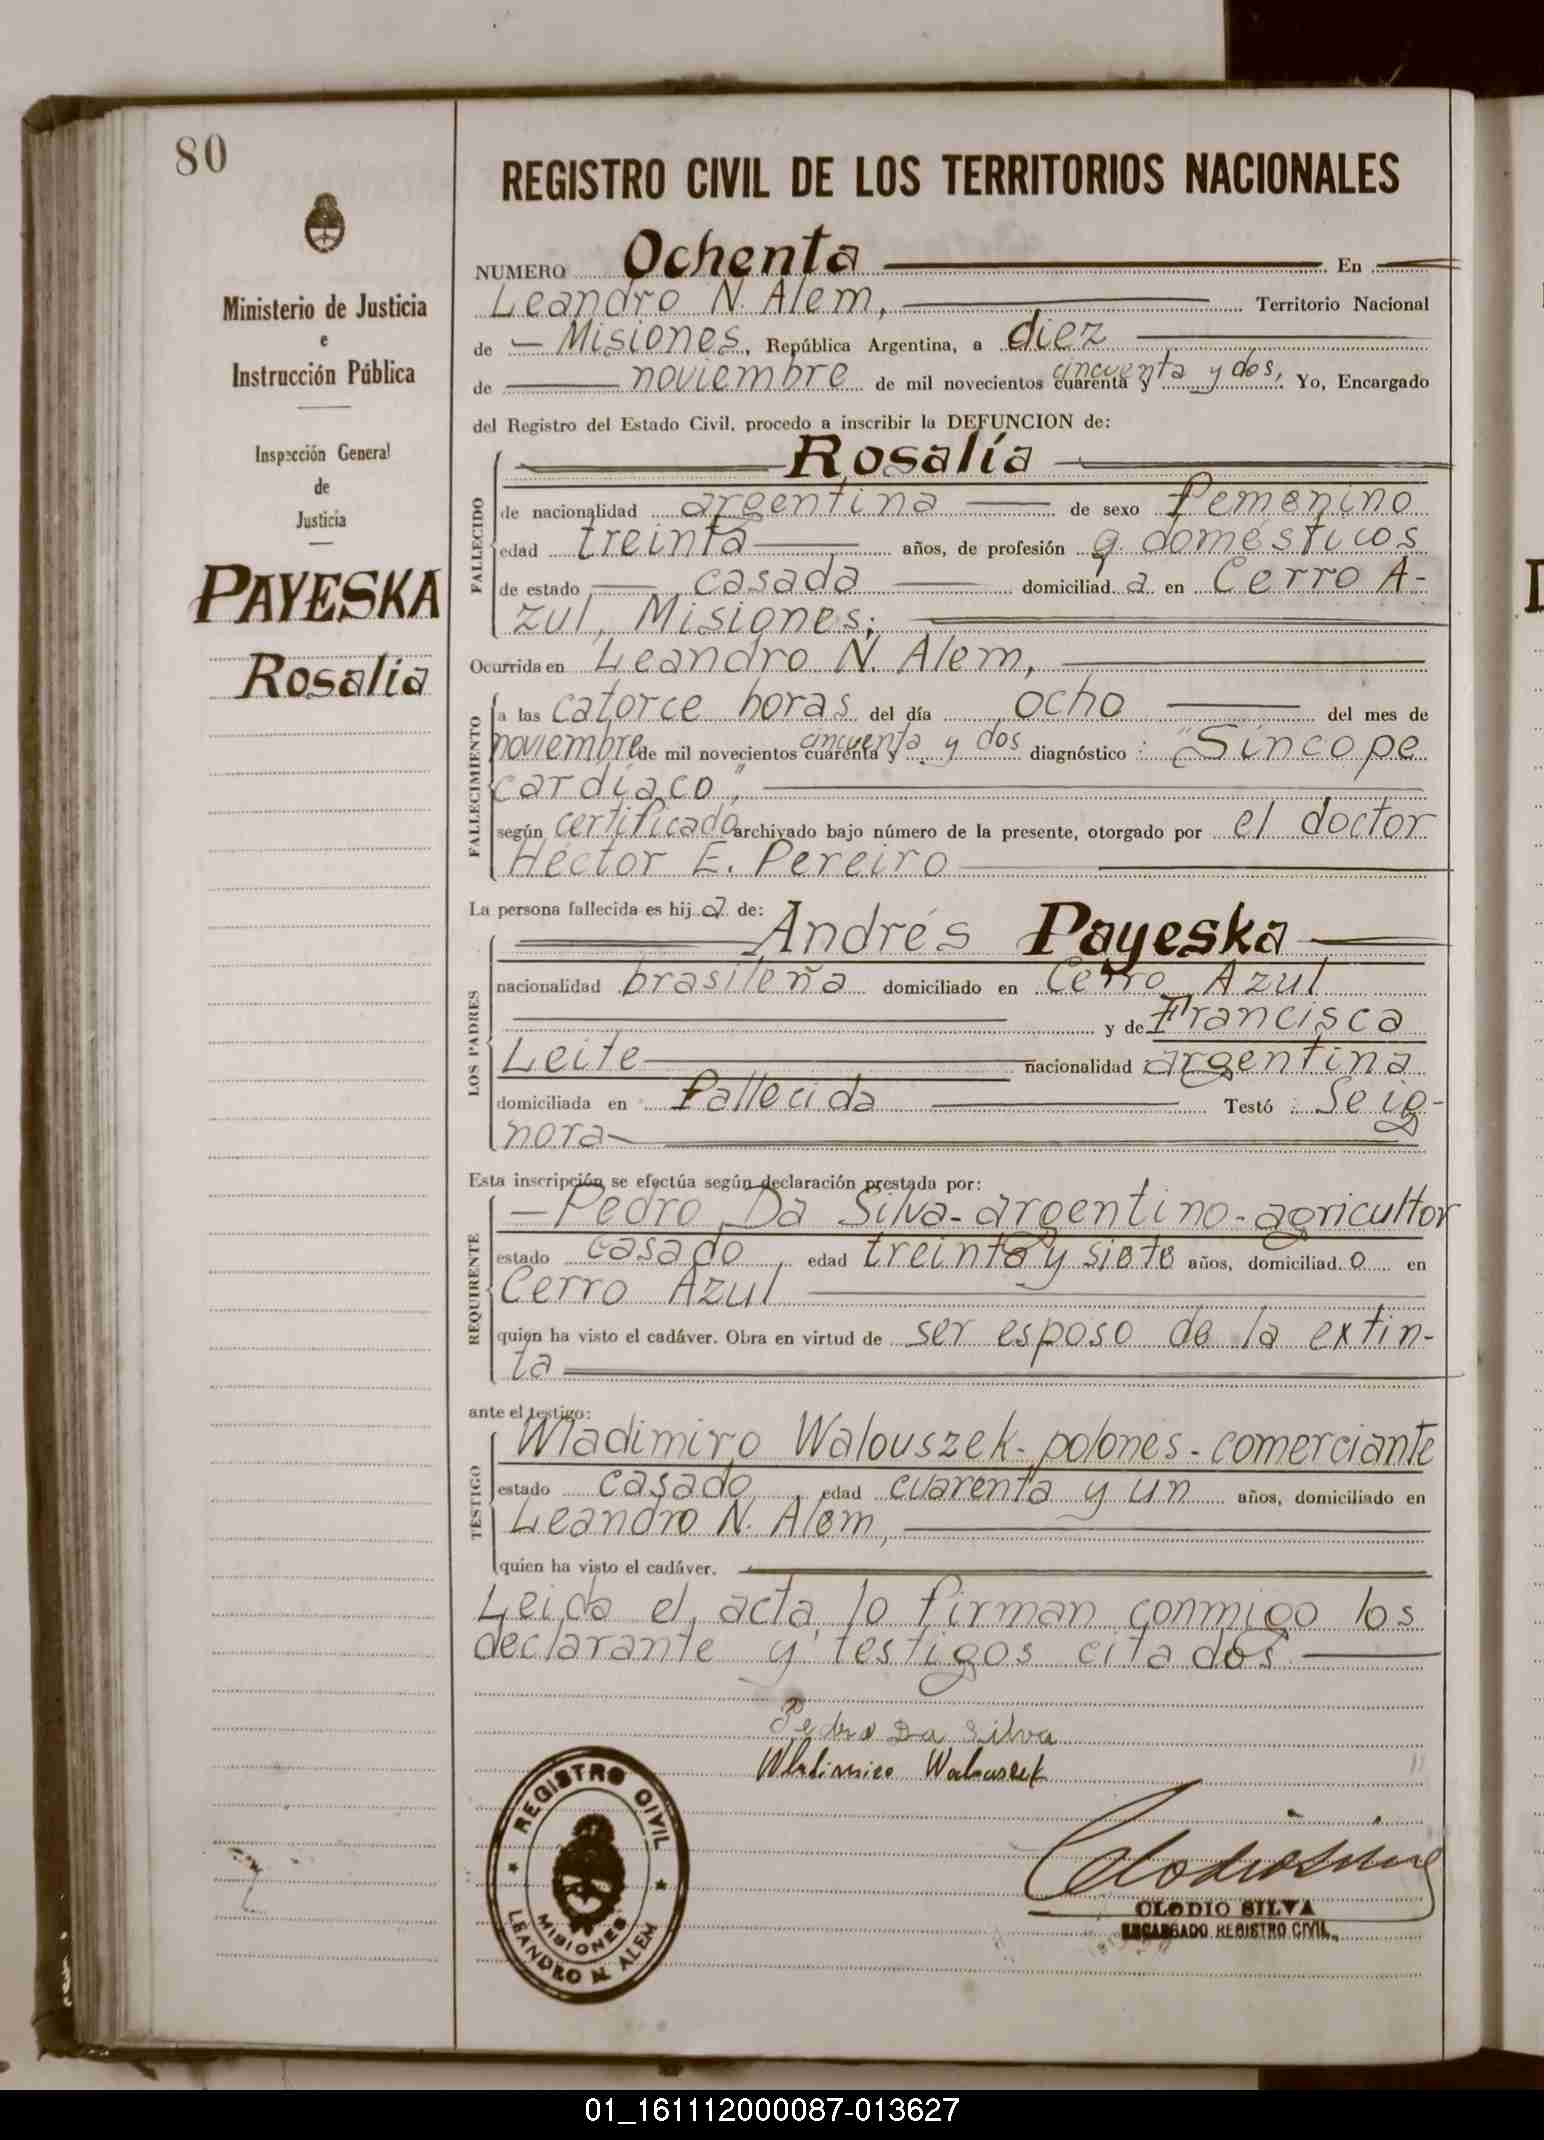 80
Ministerio de Justicia
e
Instrucción Pública
Inspección General
de
Justicia
PAYESKA
Rosalía
REGISTRO CIVIL DE LOS TERRITORIOS NACIONALES
NUMERO Ochenta En
Leandro N. Alem, Territorio Nacional
de Misiones, República Argentina, a diez
de noviembre de mil novecientos cuarenta y cincuenta y dos, Yo, Encargado
del Registro del Estado Civil, procedo a inscribir la DEFUNCION de:
FALLECIDO
Rosalía
de nacionalidad argentina de sexo femenino
edad treinta años, de profesión q. domésticos
de estado casada domiciliad a en Cerro A-
zul, Misiones;
Ocurrida en Leandro N. Alem,
FALLECIMIENTO
a las catorce horas del día ocho del mes de
noviembre de mil novecientos cuarenta y cincuenta y dos diagnóstico: "Síncope
cardíaco",
según certificado archivado bajo número de la presente, otorgado por el doctor
Héctor E. Pereiro
La persona fallecida es hij a de:
LOS PADRES
Andrés Payeska
nacionalidad brasileña domiciliado en Cerro Azul
y de Francisca
Leite nacionalidad argentina
domiciliada en fallecida Testó: Se ig-
nora
Esta inscripción se efectúa según declaración prestada por:
REQUIRENTE
Pedro Da Silva-argentino-agricultor
estado casado, edad treinta y siete años, domiciliad o en
Cerro Azul
quien ha visto el cadáver. Obra en virtud de ser esposo de la extin-
ta
ante el testigo:
TESTIGO
Wladimiro Walouszek-polones-comerciante
estado casado, edad cuarenta y un años, domiciliado en
Leandro N. Alem,
quien ha visto el cadáver.
Leida el acta, lo firman conmigo los
declarante y testigos citados
Pedro Da Silva
Wladimiro Walouszek
REGISTRO CIVIL
MISIONES
LEANDRO N. ALEM
CLODIO SILVA
ENCARGADO REGISTRO CIVIL
01_161112000087-013627